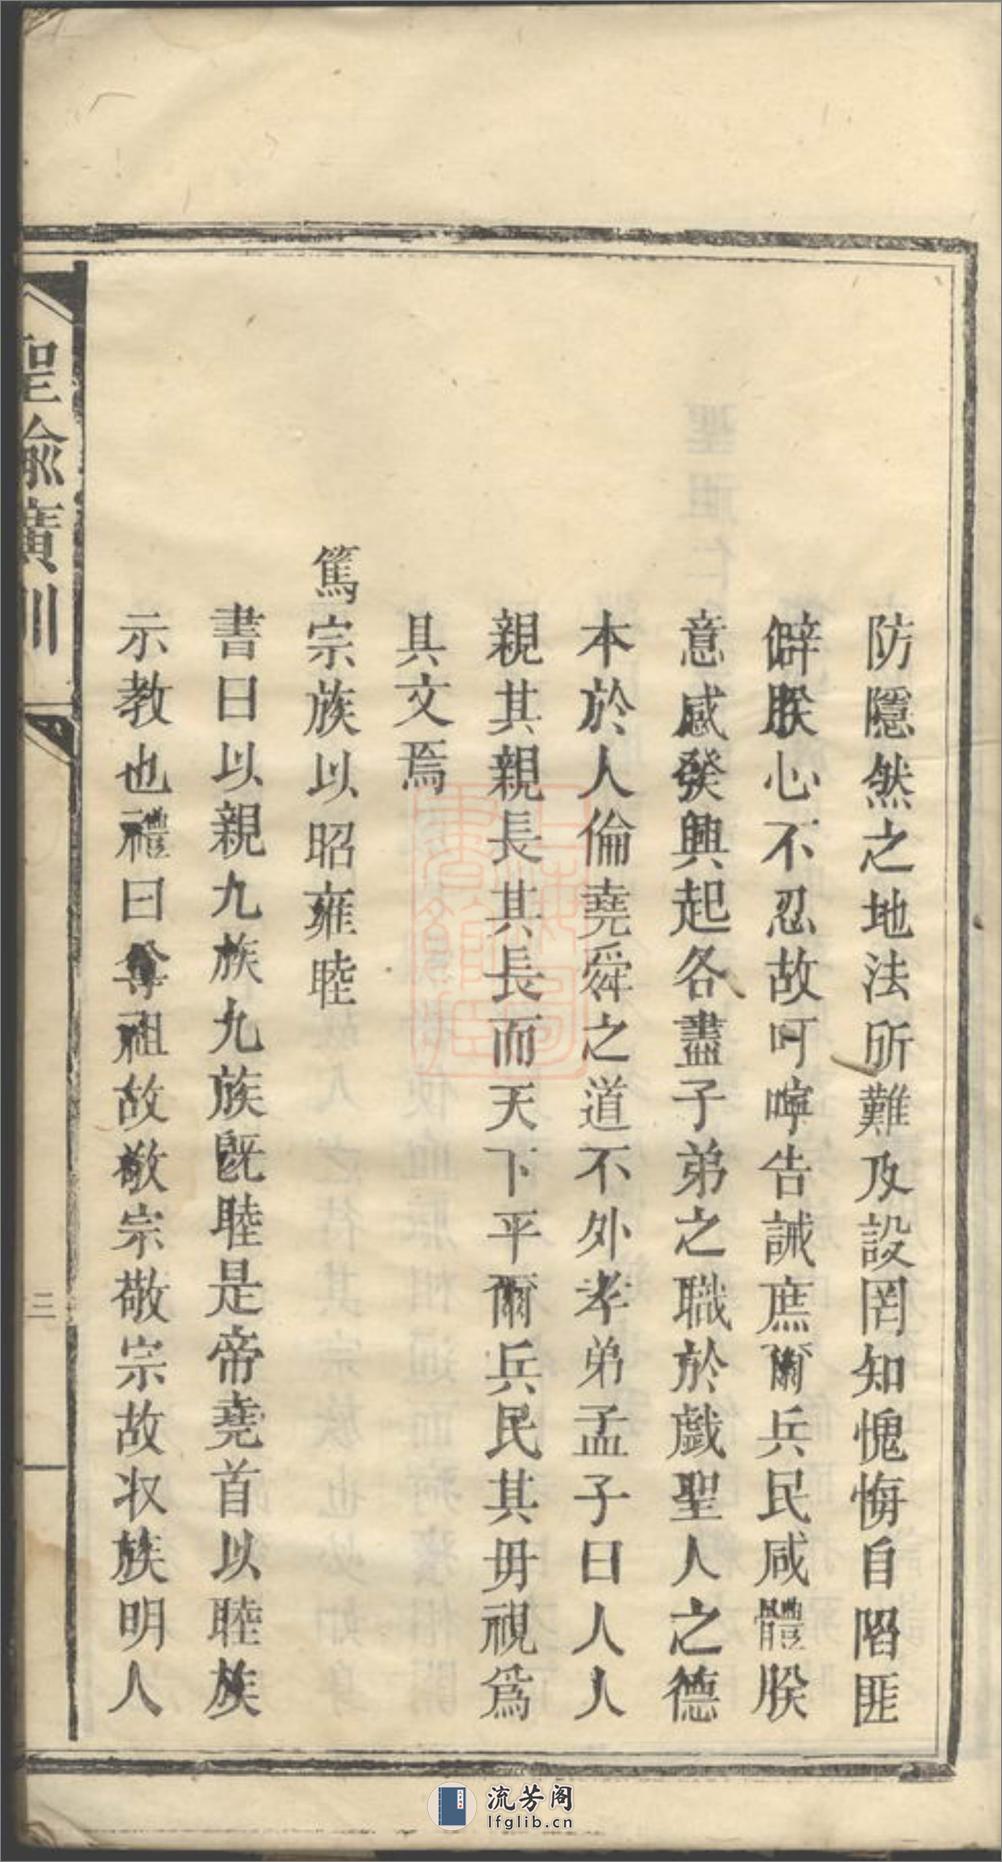 防隱然之地法所難及設罔知愧悔自陷匪
僻朕心不忍故叮嚀告誡庶爾兵民咸體朕
意感發興起各盡子弟之職於戲聖人之德
本於人倫堯舜之道不外孝弟孟子曰人人
親其親長其長而天下平爾兵民其毋視爲
具文焉
篤宗族以昭雍睦
書曰以親九族九族旣睦是帝堯首以睦族
示教也禮曰尊祖故敬宗敬宗故收族明人
聖諭廣訓
三
流芳阁
lfglib.cn